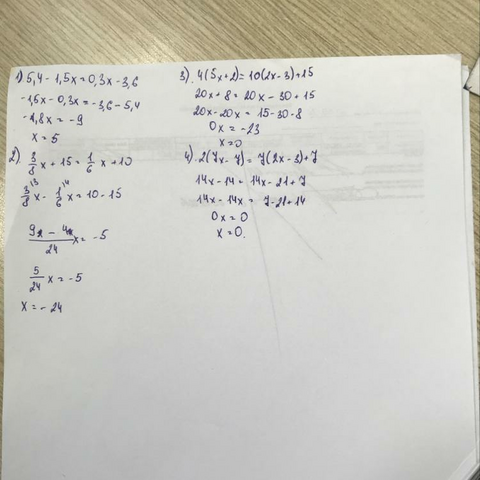 1) 5,4 - 1,5x = 0,3x - 3,6
-1,5x - 0,3x = -3,6 - 5,4
-1,8x = -9
x = 5
2) 3/8 x + 15 = 1/6 x + 10
3/8 \3 x - 1/6 \4 x = 10 - 15
9x - 4x/24 x = -5
5/24 x = -5
x = - 24
3). 4(5x+2) = 10(2x-3)+15
20x + 8 = 20x - 30 + 15
20x - 20x = 15 - 30 - 8
0x = -23
x = 0
4). 2(7x - 7) = 7(2x - 3) + 7
14x - 14 = 14x - 21 + 7
14x - 14x = 7 - 21 + 14
0x = 0
x = 0.